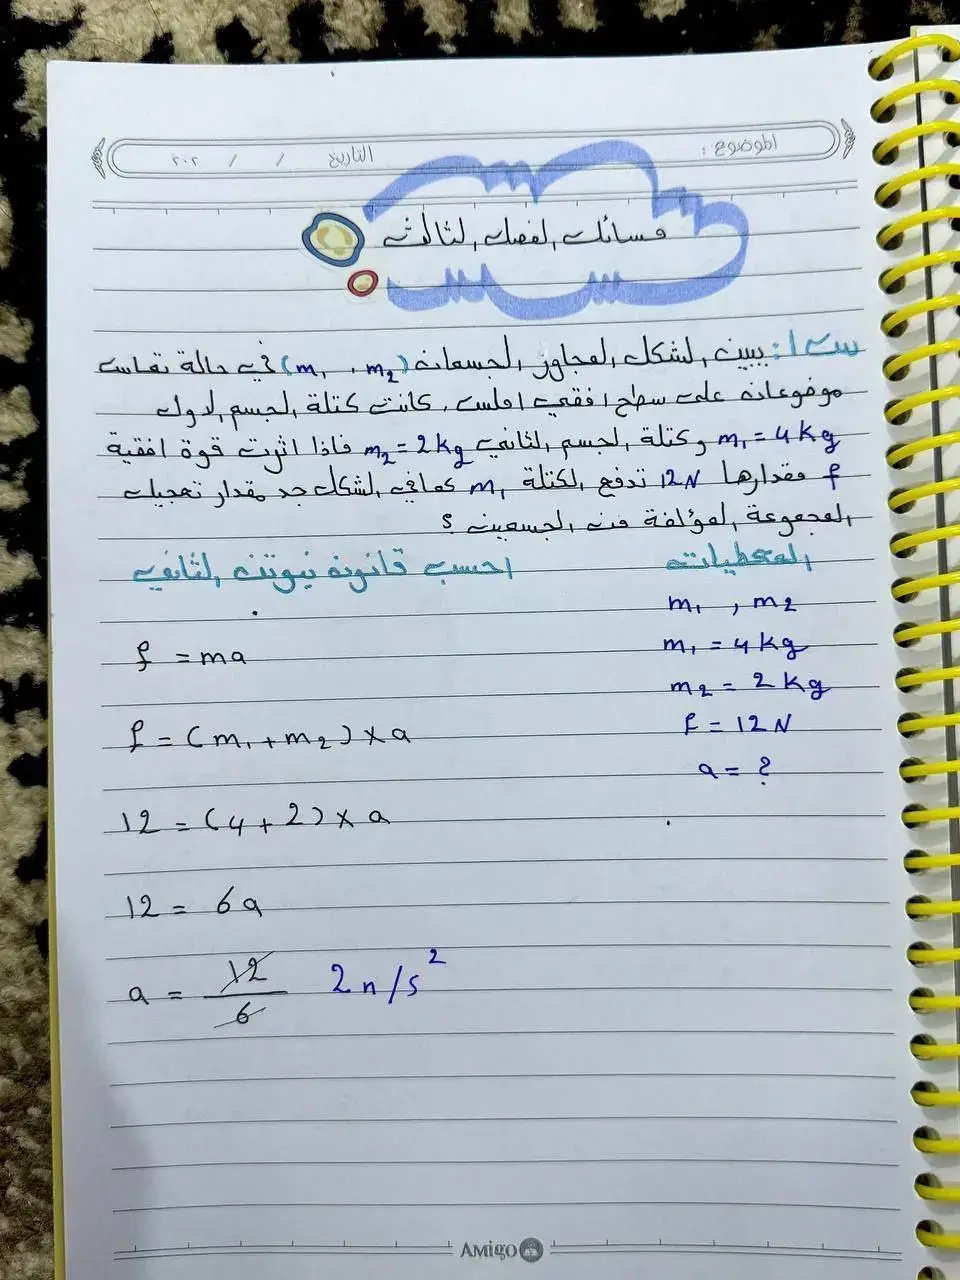 الموضوع :
التاريخ / / ٢٠٢
مسائل الفصل الثالث
س١: يبين الشكل المجاور الجسمان (m₁ , m₂) في حالة تماس
موضوعان على سطح افقي املس، كانت كتلة الجسم الاول
m₁ = 4 Kg وكتلة الجسم الثاني m₂ = 2 Kg فاذا اثرت قوة افقية
f مقدارها 12N تدفع الكتلة m₁ كما في الشكل جد مقدار تعجيل
المجموعة المؤلفة من الجسمين ؟
المعطيات
m₁ , m₂
m₁ = 4 Kg
m₂ = 2 Kg
F = 12 N
a = ?
احسب قانون نيوتن الثاني
f = ma
f = (m₁ + m₂) x a
12 = (4 + 2) x a
12 = 6a
a = 12/6 2n/s²
AMIGO